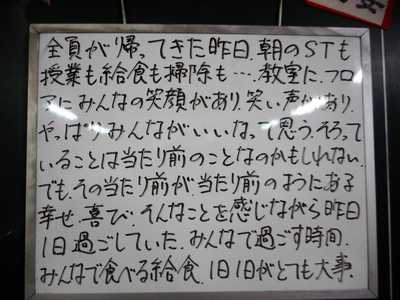 全員が帰ってきた昨日.朝のSTも
授業も給食も掃除も….教室に.フロ
アにみんなの笑顔があり.笑い声があり.
やっぱりみんながいいなって思う.そろって
いることは当たり前のことなのかもしれない.
でも.その当たり前が.当たり前のようにある
幸せ.喜び.そんなことを感じながら昨日
1日過ごしていた.みんなで過ごす時間.
みんなで食べる給食.1日1日がとても大事.